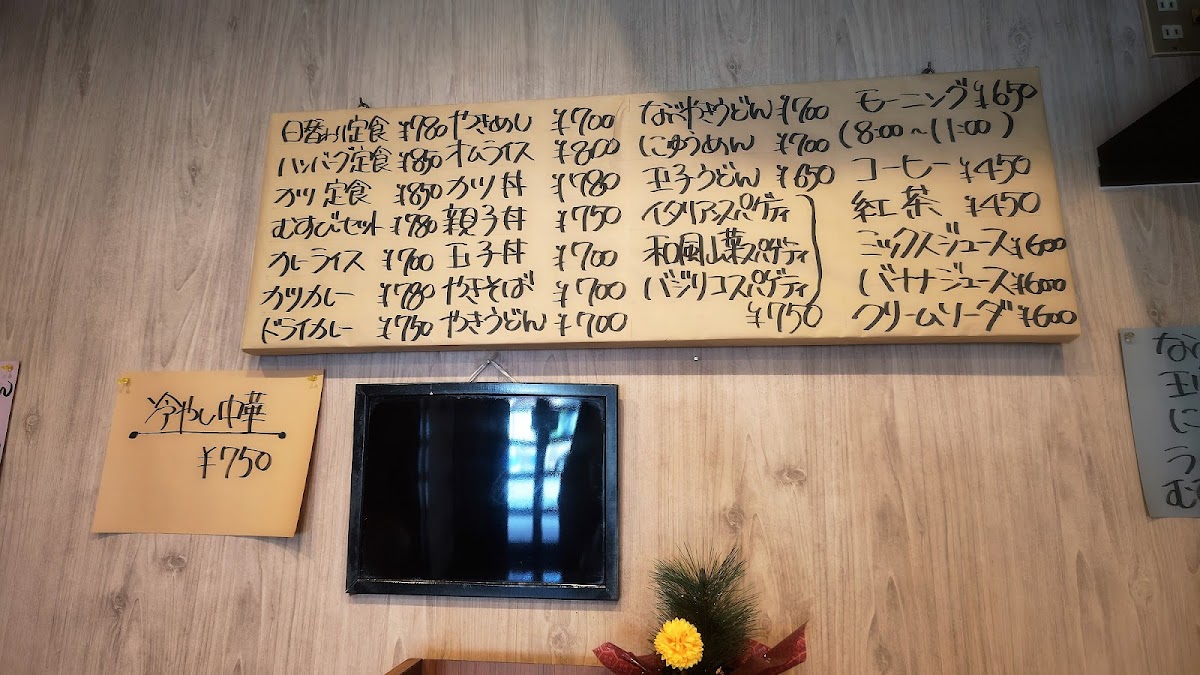 日替わり定食 ¥780
ハンバーグ定食 ¥850
カツ定食 ¥850
むすびセット ¥780
カレーライス ¥700
カツカレー ¥780
ドライカレー ¥750
やきめし ¥700
オムライス ¥800
カツ丼 ¥780
親子丼 ¥750
玉子丼 ¥700
やきそば ¥700
やきうどん ¥700
なべやきうどん ¥700
にゅうめん ¥700
玉子うどん ¥650
イタリアンスパゲティ
和風山菜スパゲティ
バジリコスパゲティ
¥750
モーニング ¥650
(8:00～11:00)
コーヒー ¥450
紅茶 ¥450
ミックスジュース ¥600
バナナジュース ¥600
クリームソーダ ¥600
冷やし中華
¥750